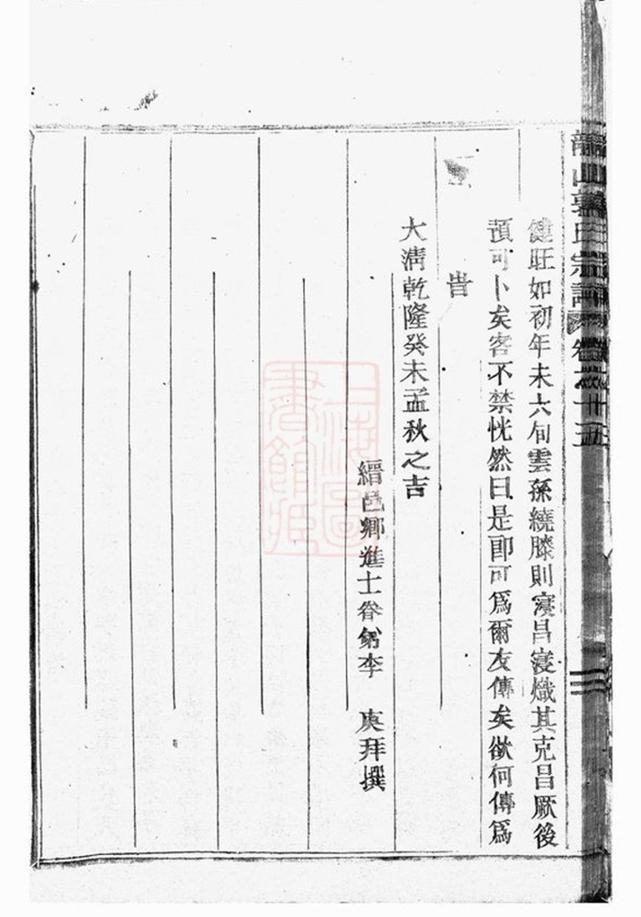 健旺如初年未六旬雲孫繞膝則寖昌寖熾其克昌厥後
預可卜矣客不禁恍然曰是卽可爲爾友傳矣欲何傳爲
旹
大清乾隆癸未孟秋之吉
縉邑鄉進士眷弟李 庚拜撰
郭氏宗譜 卷之廿五
上海圖書館藏